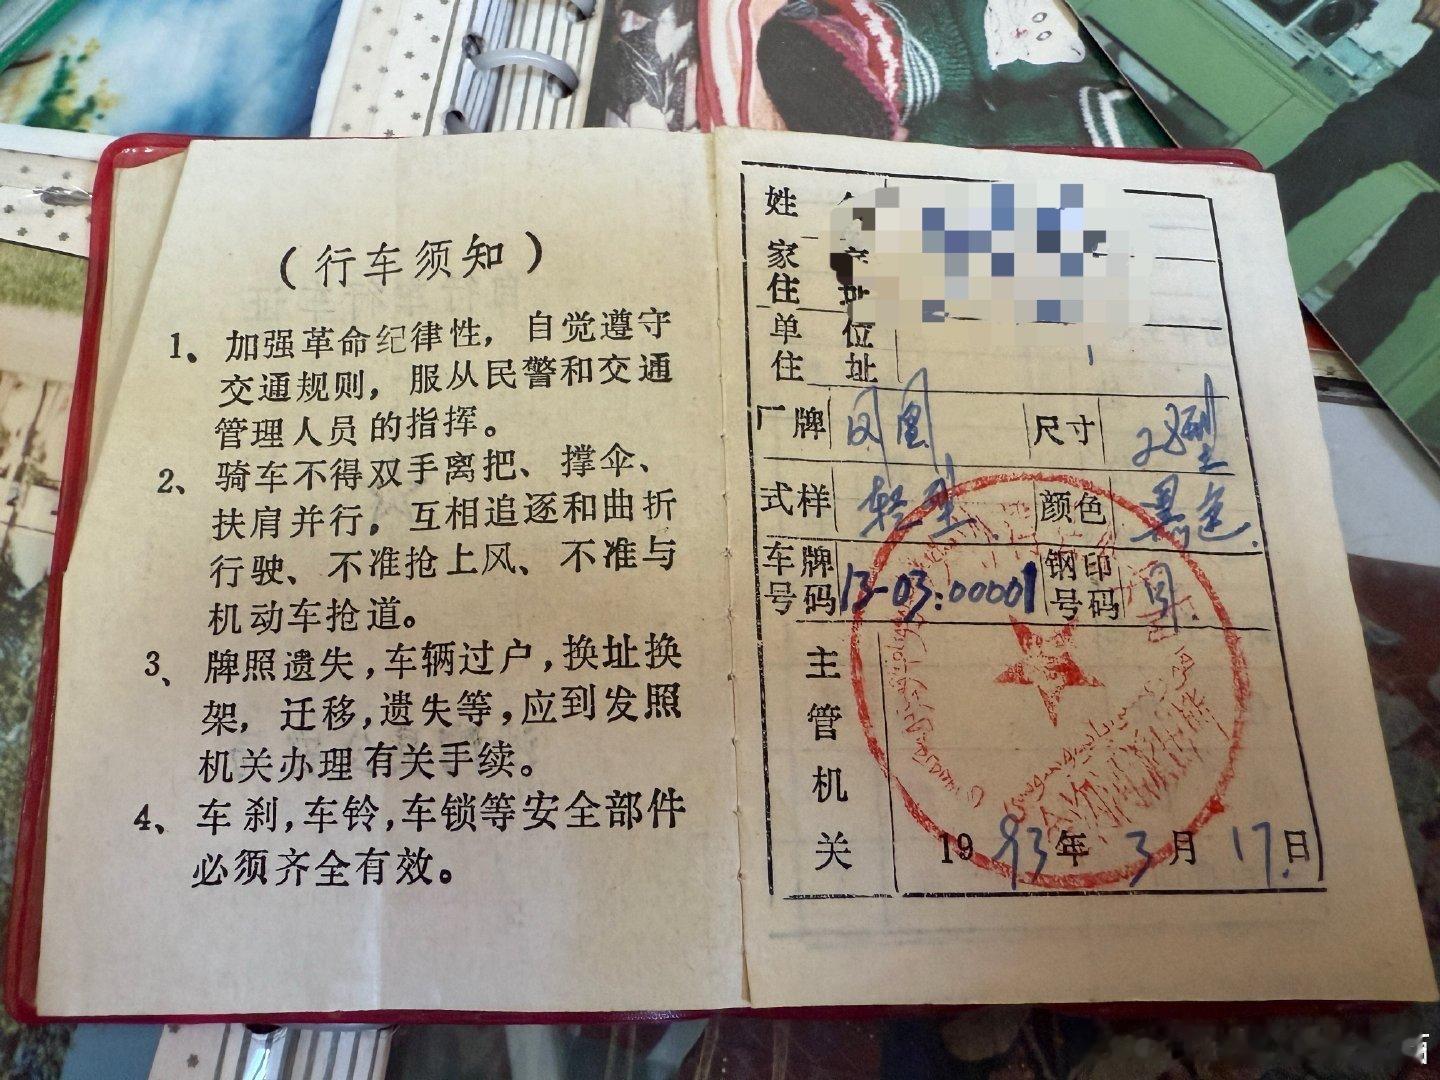 （行车须知）
1、加强革命纪律性，自觉遵守
交通规则，服从民警和交通
管理人员的指挥。
2、骑车不得双手离把、撑伞、
扶肩并行，互相追逐和曲折
行驶、不准抢上风、不准与
机动车抢道。
3、牌照遗失，车辆过户，换址换
架，迁移，遗失等，应到发照
机关办理有关手续。
4、车刹，车铃，车锁等安全部件
必须齐全有效。
姓
家
住 址
单 位
住 址
厂牌 凤凰 尺寸 28型
式样 轻型. 颜色 黑色.
车牌号码 13-03:00001 钢印号码 同.
主
管
机
关 1993年3月17日